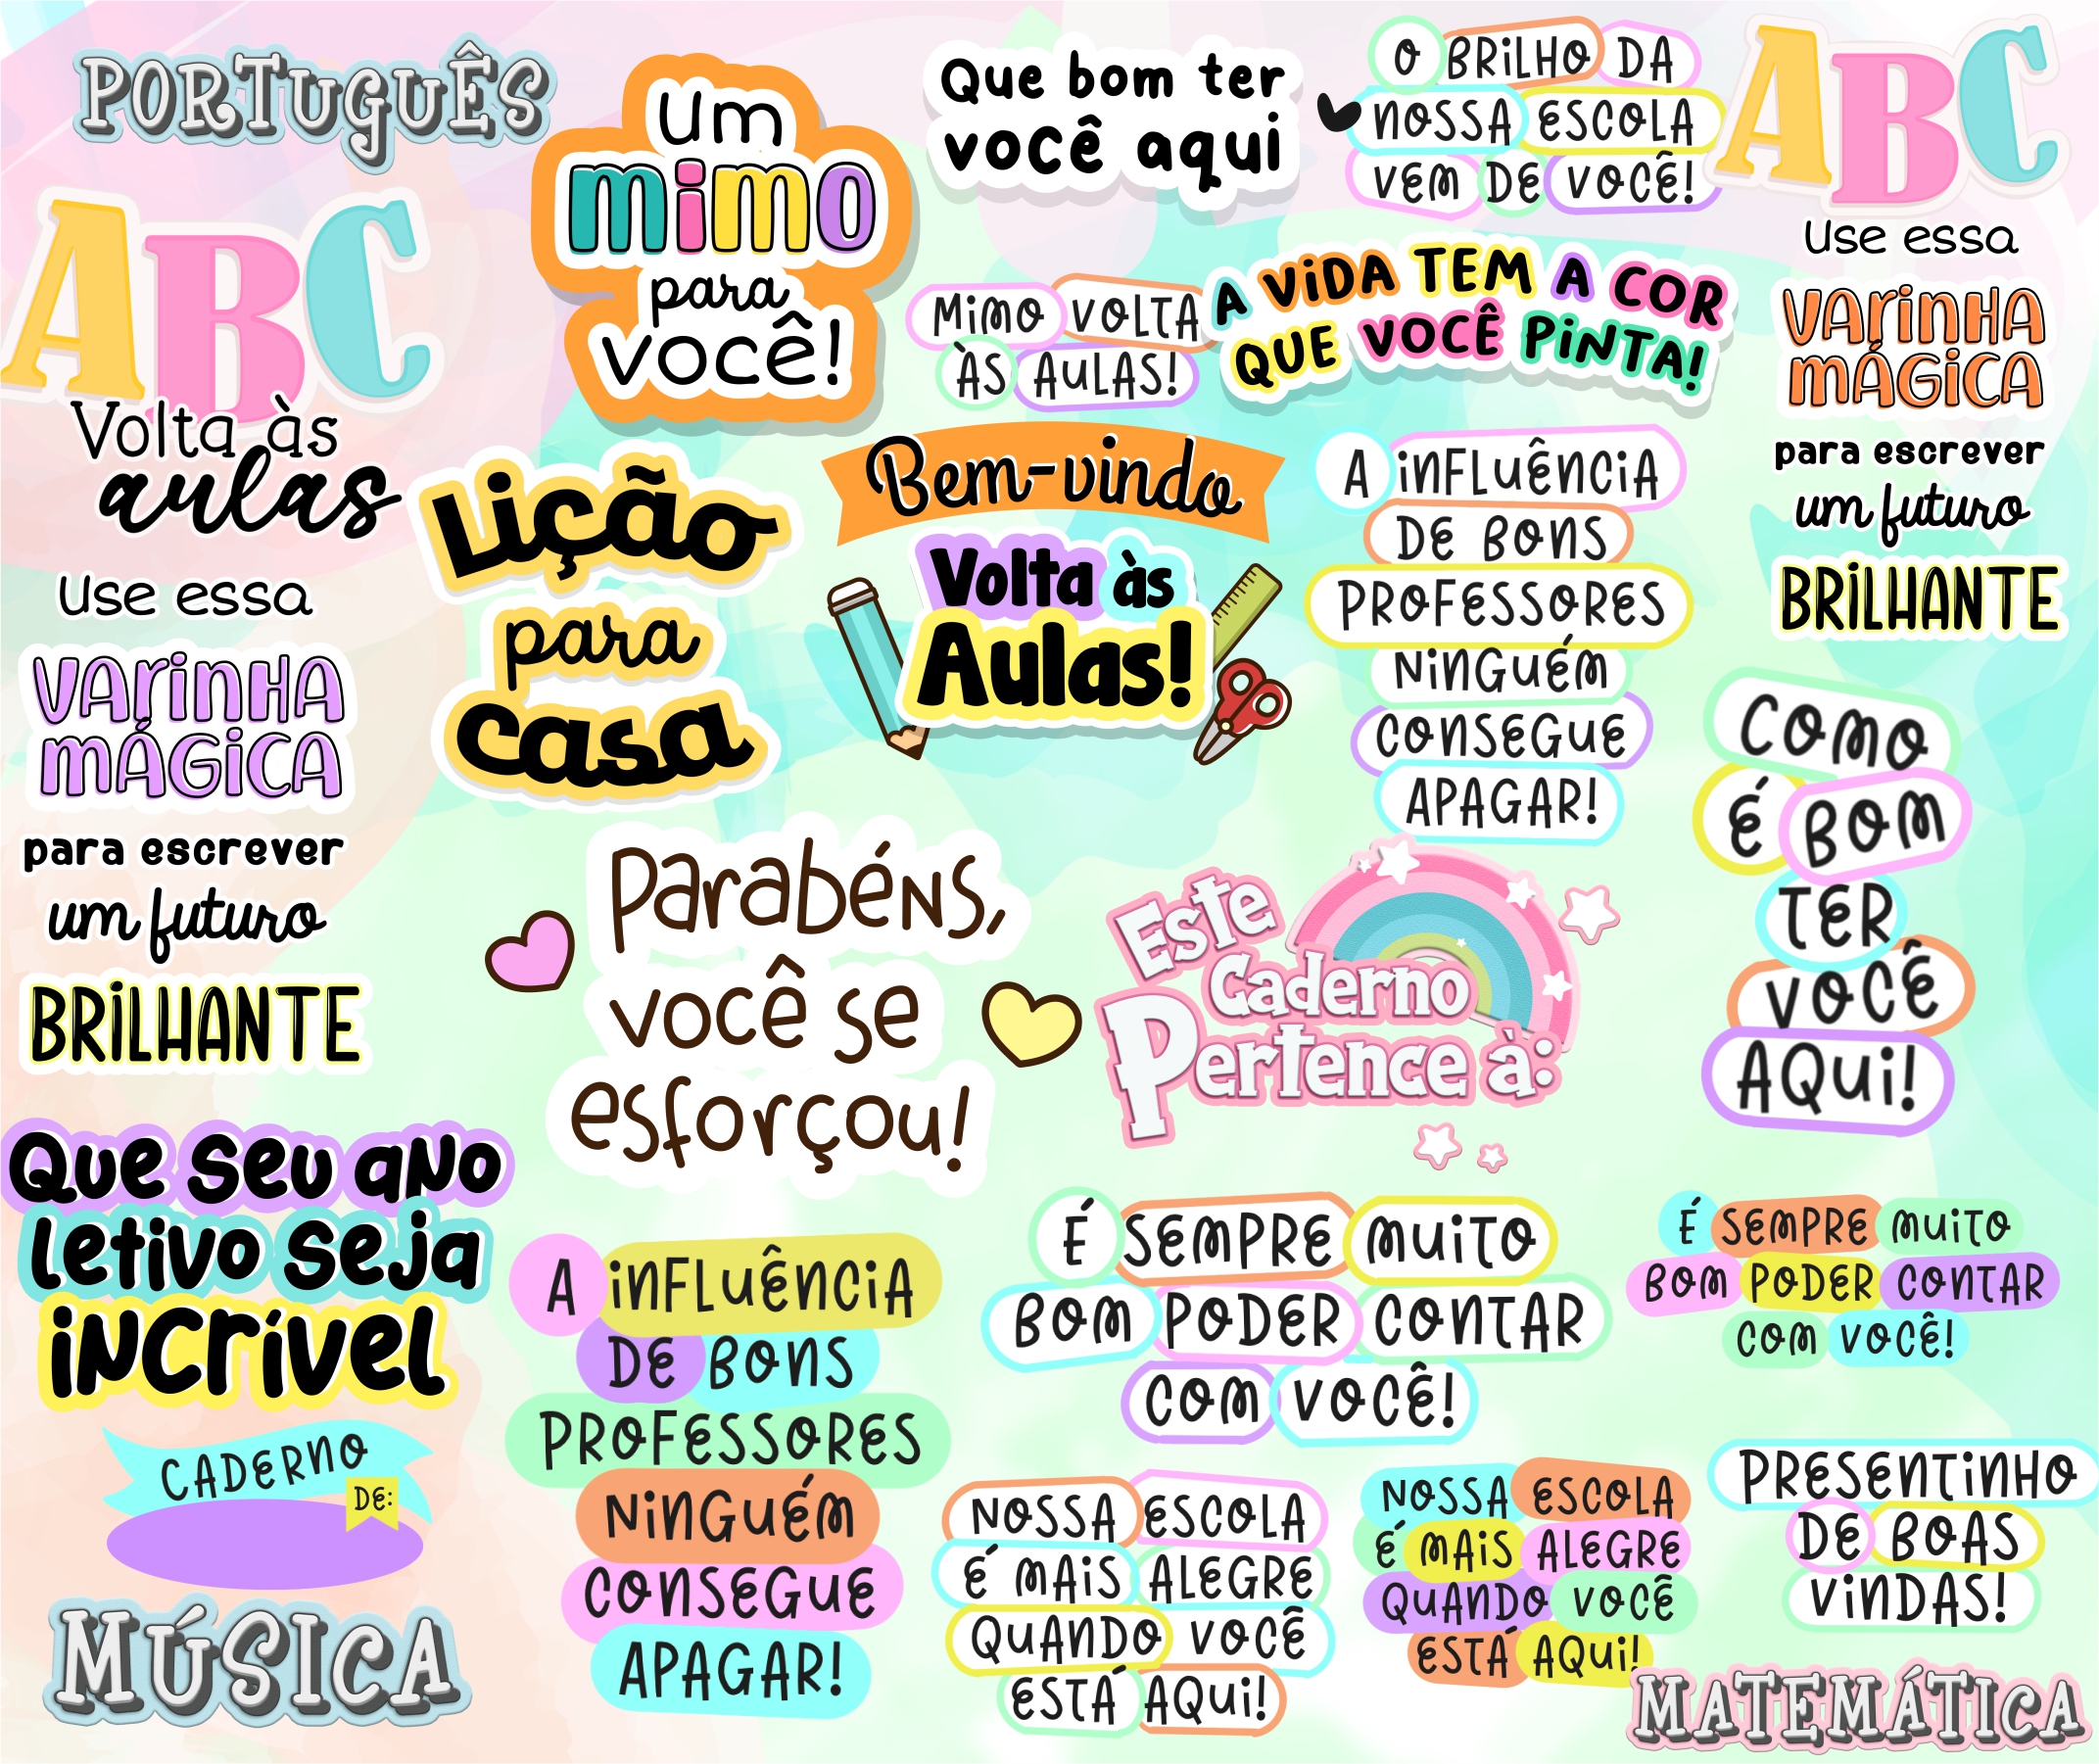 PORTUGUÊS
ABC
Volta às
aulas
use essa
VARINHA
MÁGICA
para escrever
um futuro
BRILHANTE
Que seu ano
letivo seja
incrível
CADERNO
DE:
MÚSICA
um
mimo
para
você!
Lição
para
casa
Parabéns,
você se
esforçou!
A INFLUÊNCIA
DE BONS
PROFESSORES
NINGUÉM
CONSEGUE
APAGAR!
Que bom ter
você aqui
MIMO VOLTA
ÀS AULAS!
Bem-vindo
Volta às
Aulas!
O BRILHO DA
NOSSA ESCOLA
VEM DE VOCÊ!
A VIDA TEM A COR
QUE VOCÊ PINTA!
A INFLUÊNCIA
DE BONS
PROFESSORES
NINGUÉM
CONSEGUE
APAGAR!
Este
Caderno
Pertence à:
É SEMPRE MUITO
BOM PODER CONTAR
COM VOCÊ!
NOSSA ESCOLA
É MAIS ALEGRE
QUANDO VOCÊ
ESTÁ AQUI!
ABC
use essa
VARINHA
MÁGICA
para escrever
um futuro
BRILHANTE
COMO
É BOM
TER
VOCÊ
AQUI!
É SEMPRE MUITO
BOM PODER CONTAR
COM VOCÊ!
NOSSA ESCOLA
É MAIS ALEGRE
QUANDO VOCÊ
ESTÁ AQUI!
PRESENTINHO
DE BOAS
VINDAS!
MATEMÁTICA